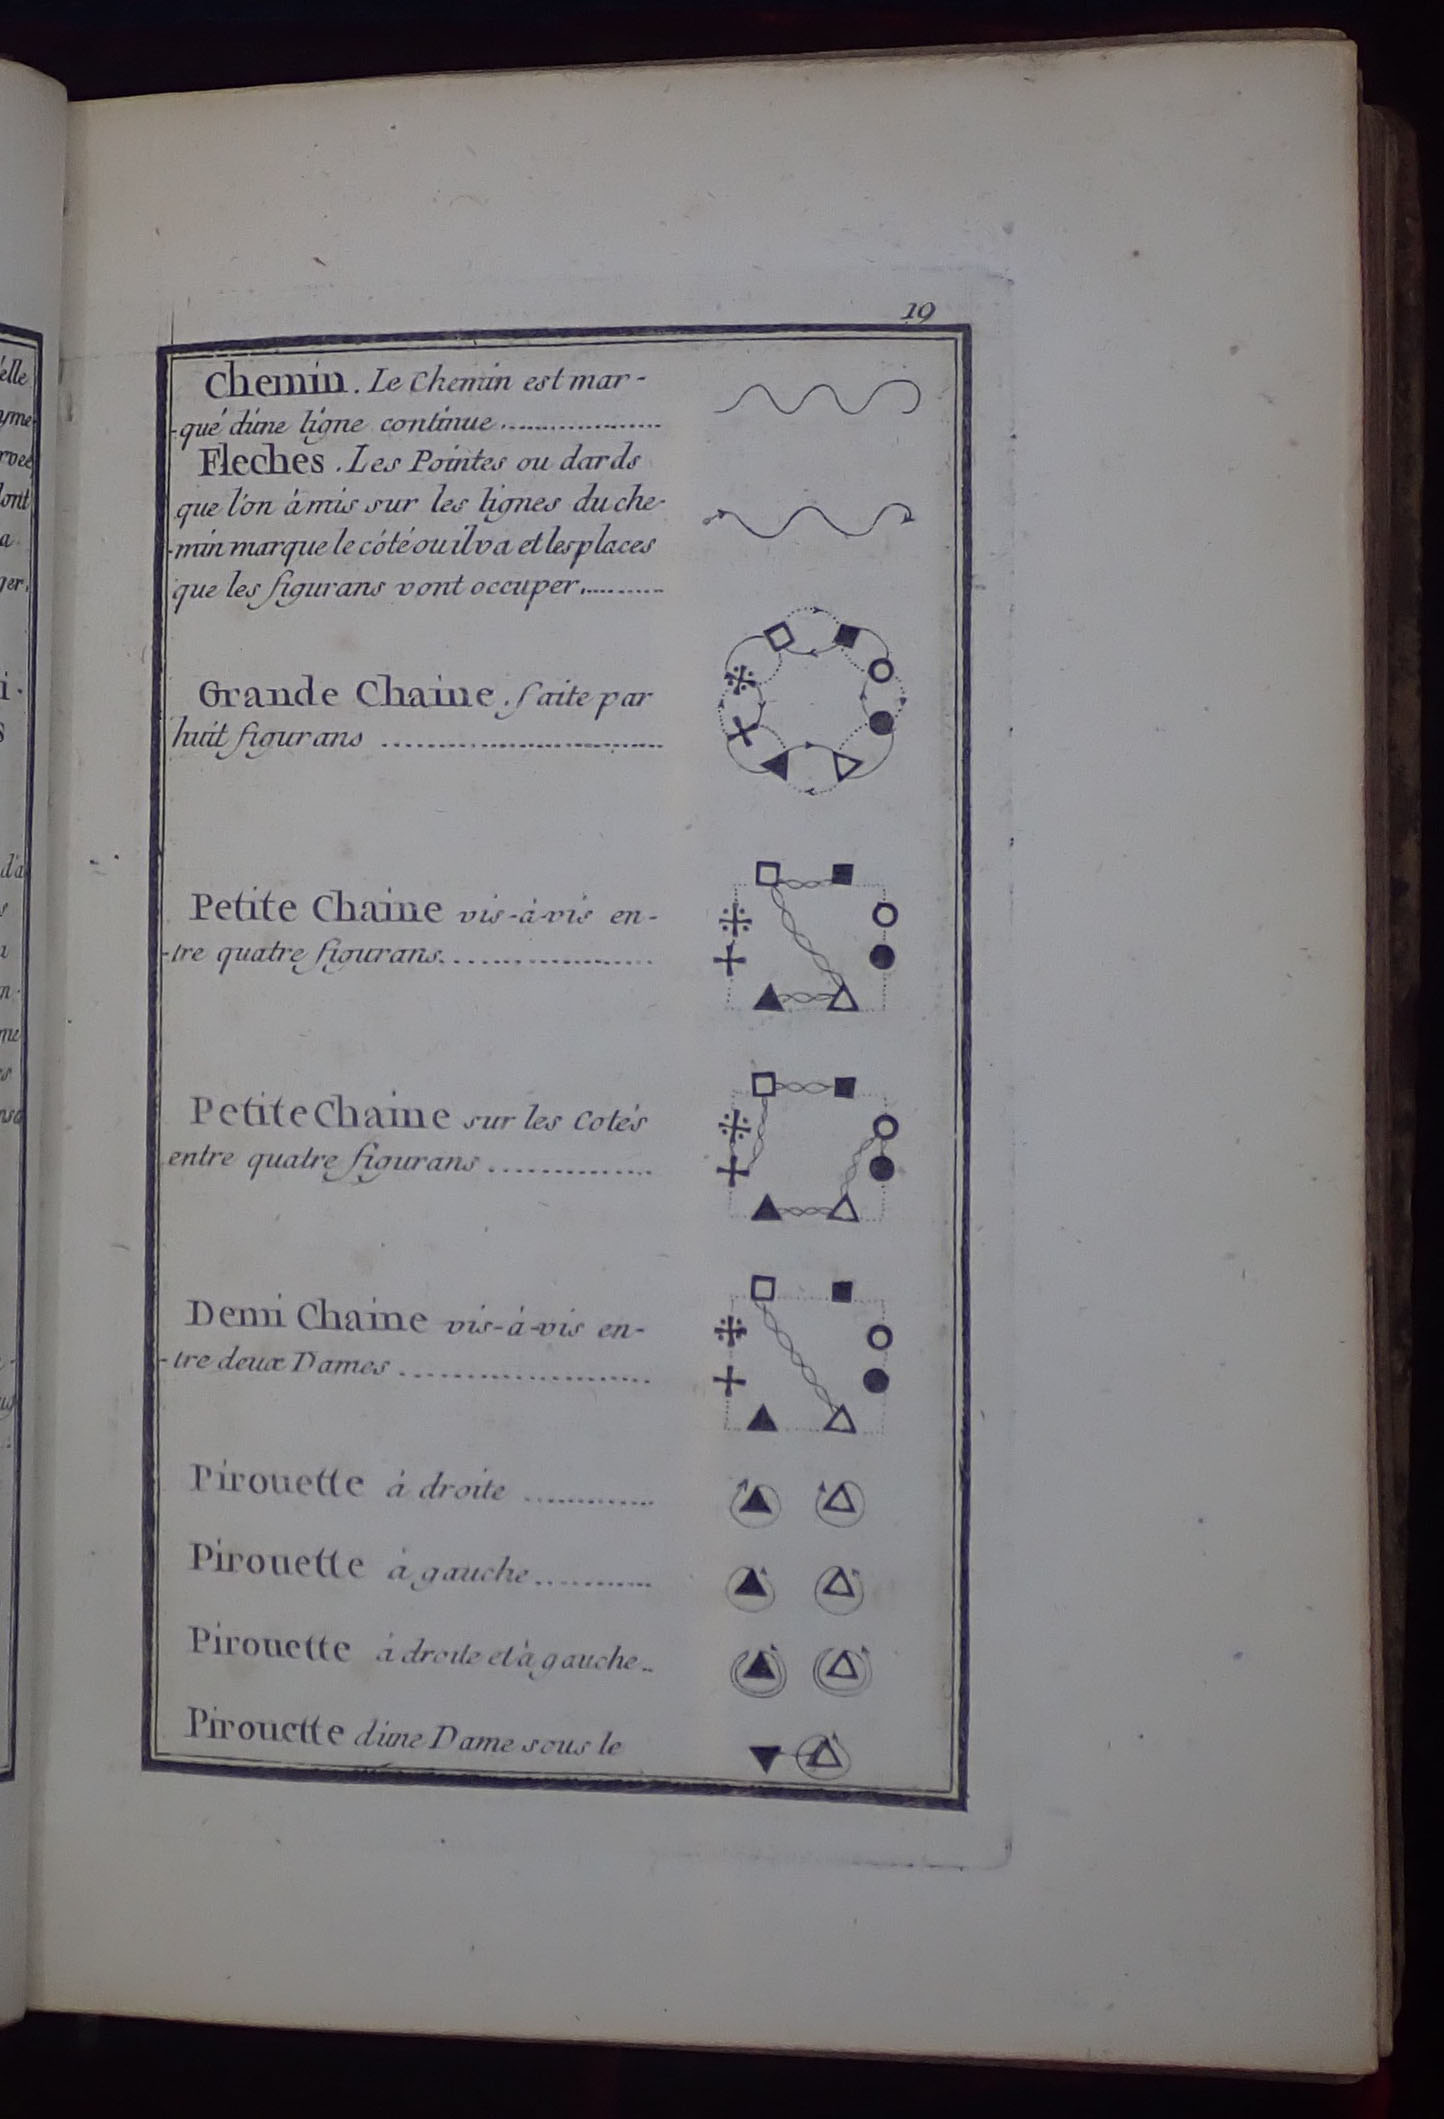 elle
yme
rvee
dont
a
ger.
i.
s
d'a
n.
me
19
Chemin. Le Chemin est mar-
-qué d'une ligne continue
Fleches. Les Pointes ou dards
que l'on à mis sur les lignes du che-
-min marque le côté ou il va et les places
que les figurans vont occuper
Grande Chaine. faite par
huit figurans
Petite Chaine vis-à-vis en-
-tre quatre figurans.
Petite Chaine sur les Cotés
entre quatre figurans
Demi Chaine vis-à-vis en-
-tre deux Dames
Pirouette à droite
Pirouette à gauche
Pirouette à droite et à gauche
Pirouette d'une Dame sous le